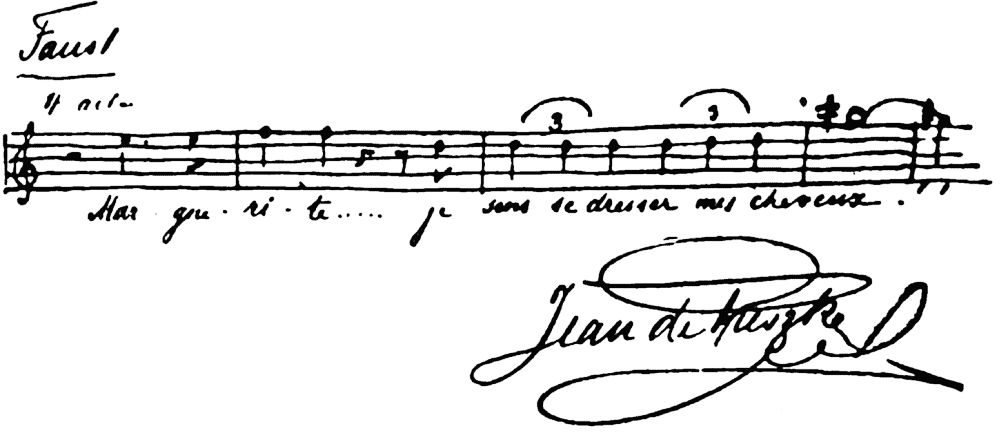 Faust
4 acte
Mar - gue - ri - te..... je sens se dresser mes cheveux.
3 3
Jean de Reszke